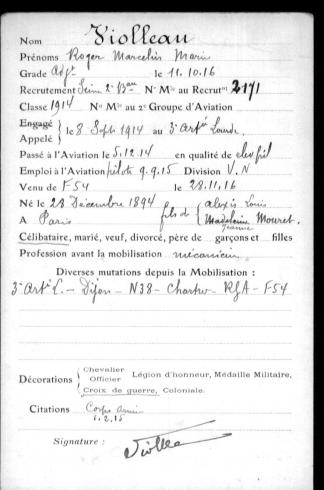 Nom Violleau
Prénoms Roger Marcelin Marie
Grade Adjt le 11.10.16
Recrutement Seine 2e Bau No Mle au Recrutt 2171
Classe 1914 No Mle au 2e Groupe d'Aviation
Engagé
Appelé } le 8 Sept 1914 au 3e Artie Lourde.
Passé à l'Aviation le 5.12.14 en qualité de élev pil
Emploi à l'Aviation pilote 9.9.15 Division V.N
Venu de F54 le 28.11.16
Né le 28 Décembre 1894 fils de { Alexis Louis
A Paris Madeleine Mouret.
Jeanne
Célibataire, marié, veuf, divorcé, père de garçons et filles
Profession avant la mobilisation mécanicien
Diverses mutations depuis la Mobilisation :
3e Artie L. - Dijon - N38 - Chartres - RGA - F54
Décorations { Chevalier
Officier Légion d'honneur, Médaille Militaire,
Croix de guerre, Coloniale.
Citations Corps Armée
.2.15
Signature : Violleau